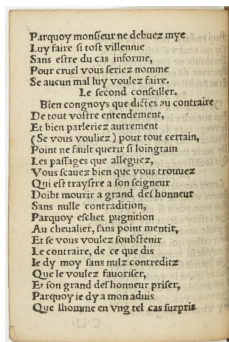 Parquoy monsieur ne debuez mye
Luy faire si tost villennie
Sans estre du cas informe,
Pour cruel vous seriez nomme
Se aucun mal luy voulez faire.
Le second conseiller.
Bien congnoys que dictes au contraire
De tout vostre entendement,
Et bien parleriez autrement
(Se vous vouliez) pour tout certain,
Point ne fault querir si loingtain
Les passages que alleguez,
Vous scauez bien que vous trouuez
Qui est traystre a son seigneur
Doibt mourir a grand deshonneur
Sans nulle contradition,
Parquoy eschet pugnition
Au cheualier, sans point mentir,
Et se vous voulez soubstenir
Le contraire, de ce que dis
Ie dy moy sans nulz contreditz
Que le voulez fauoriser,
Et son grand deshonneur priser,
Parquoy ie dy a mon aduis
Que lhomme en vng tel cas surpris